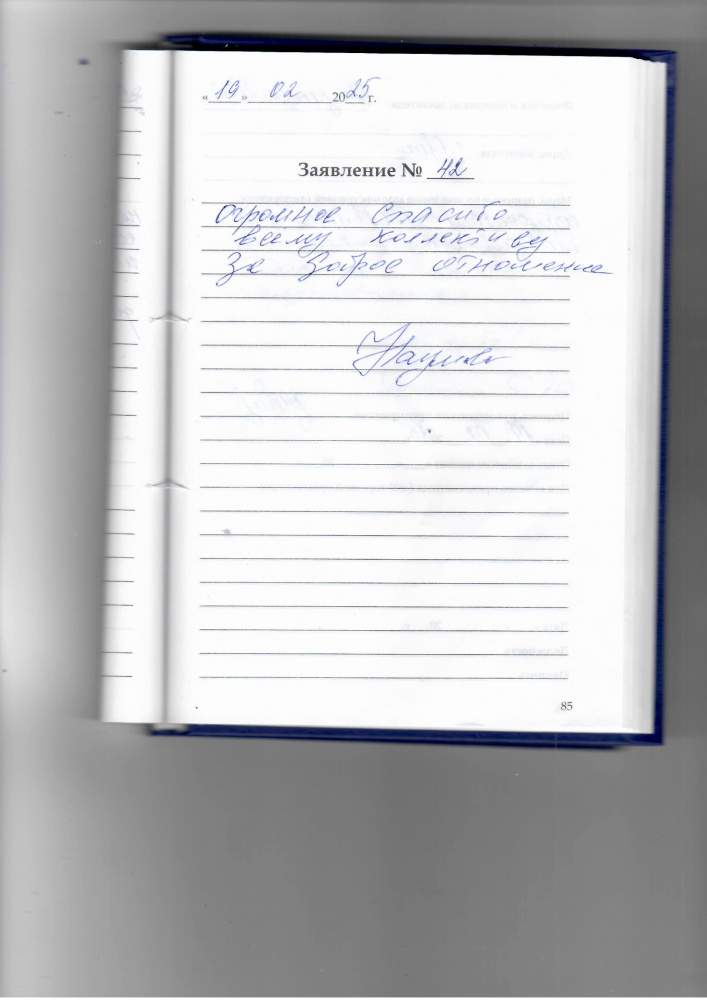 «19» 02 2025 г.
Заявление № 42
огромное спасибо
всему коллективу
За доброе отношение
85